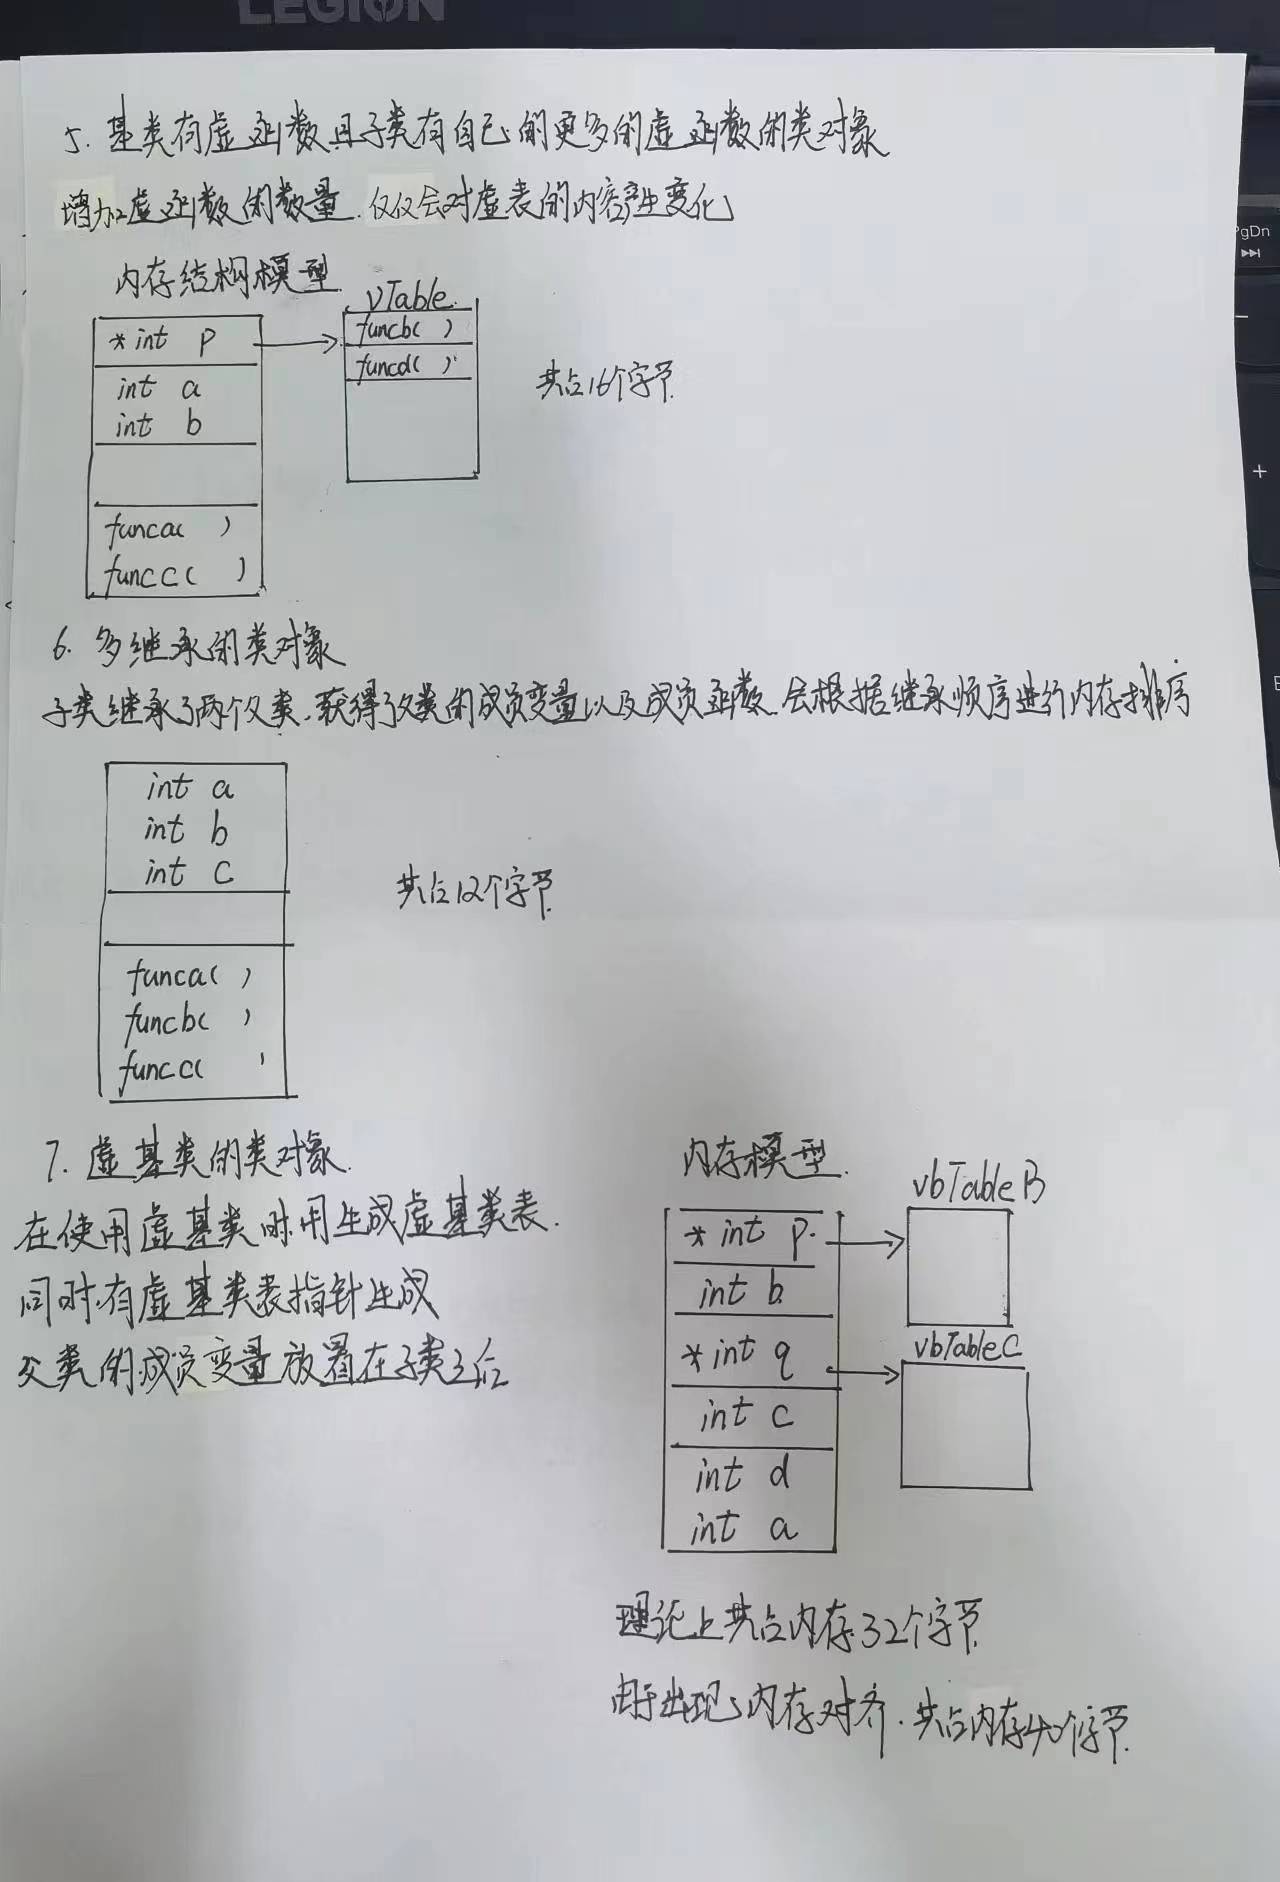 LEGION
5. 基类有虚函数且子类有自己的更多的虚函数的类对象
增加虚函数的数量.仅仅会对虚表的内容产生变化
内存结构模型.
vTable.
*int p
funcb( )
int a
funcd( )
共占16个字节.
int b
funca( )
funcc( )
6. 多继承的类对象
子类继承了两个父类.获得了父类的成员变量以及成员函数.会根据继承顺序进行内存排序
int a
int b
int c
共占12个字节.
funca( )
funcb( )
funcc( )
7. 虚基类的类对象.
在使用虚基类时.用生成虚基类表.
同时.有虚基类表指针生成
父类的成员变量放置在子类之后
内存模型.
vbTable B
*int p.
int b
*int q
vbTable C
int c
int d
int a
理论上共占内存32个字节
由于出现了内存对齐.共占内存40个字节.
PgDn
+